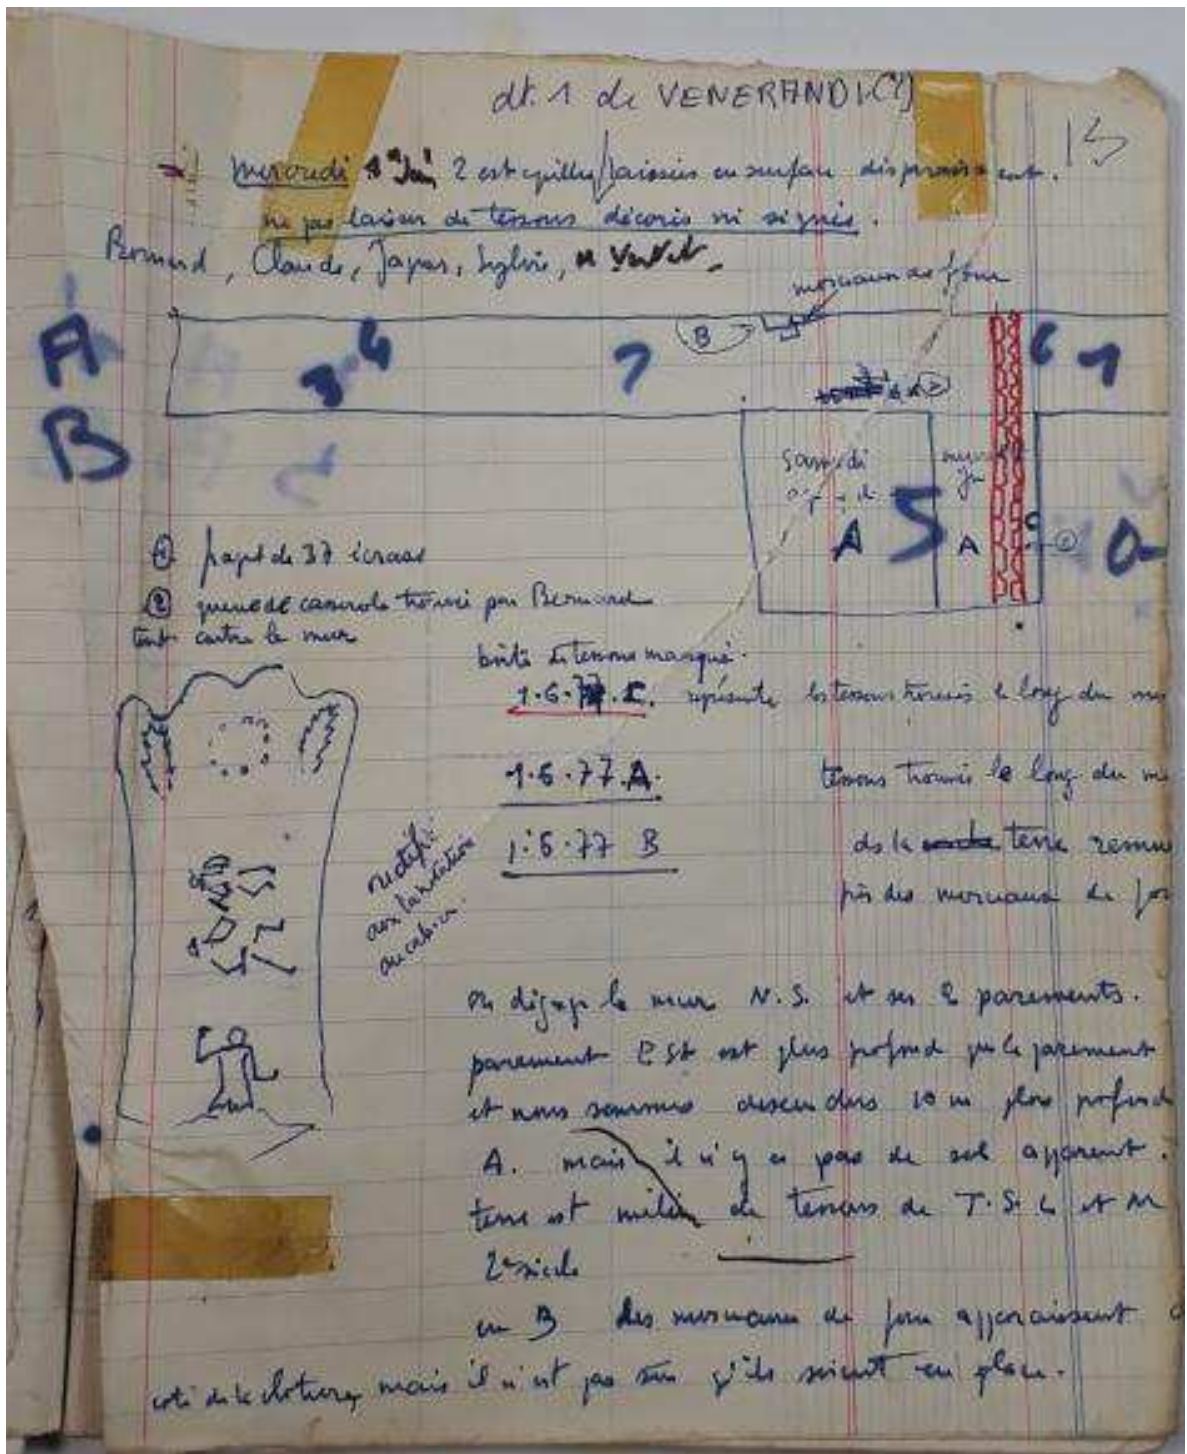 dt. 1 de VENERANDI (?)
13
mercredi 1er Juin 2 estcquilles laissées en surface disparaissent.
ne pas laisser de tessons décorés ni signés.
Bernard, Claude, Sylvie,
morceaux de four
A
B
B
3 4
7
6 1
2
samedi
A
5
A
① de 37 écrasé
② queue de casserole trouvé par Bernard
tout contre le mur
boite de tessons marqué.
1.6.77.C. représente les tessons trouvés le long du
1.6.77.A. tessons trouvés le long du
1.6.77 B ds la terre
près des morceaux de
rectifié
on dégage le mur N.S. et ses 2 parements.
parement Est est plus profond que le parement
et nous sommes descendus 10 m plus profond
A. mais il n'y a pas de sol apparent.
terre est mêlée de tessons de T.S. et
2e siècle
en B des morceaux de four apparaissent
coté de la cloture, mais il n'est pas sûr qu'ils soient en place.